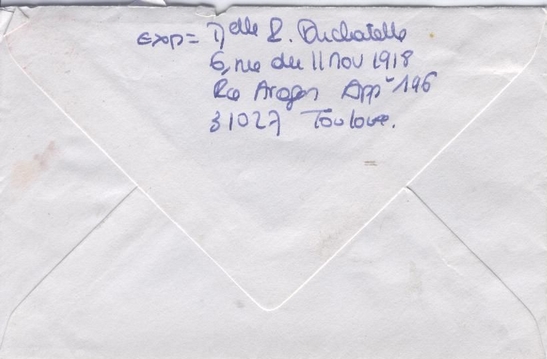 Exp= Delle R. Duchatelle
6, rue du 11 Nov 1918
Rce Aragon Appt 196
31027 Toulouse.